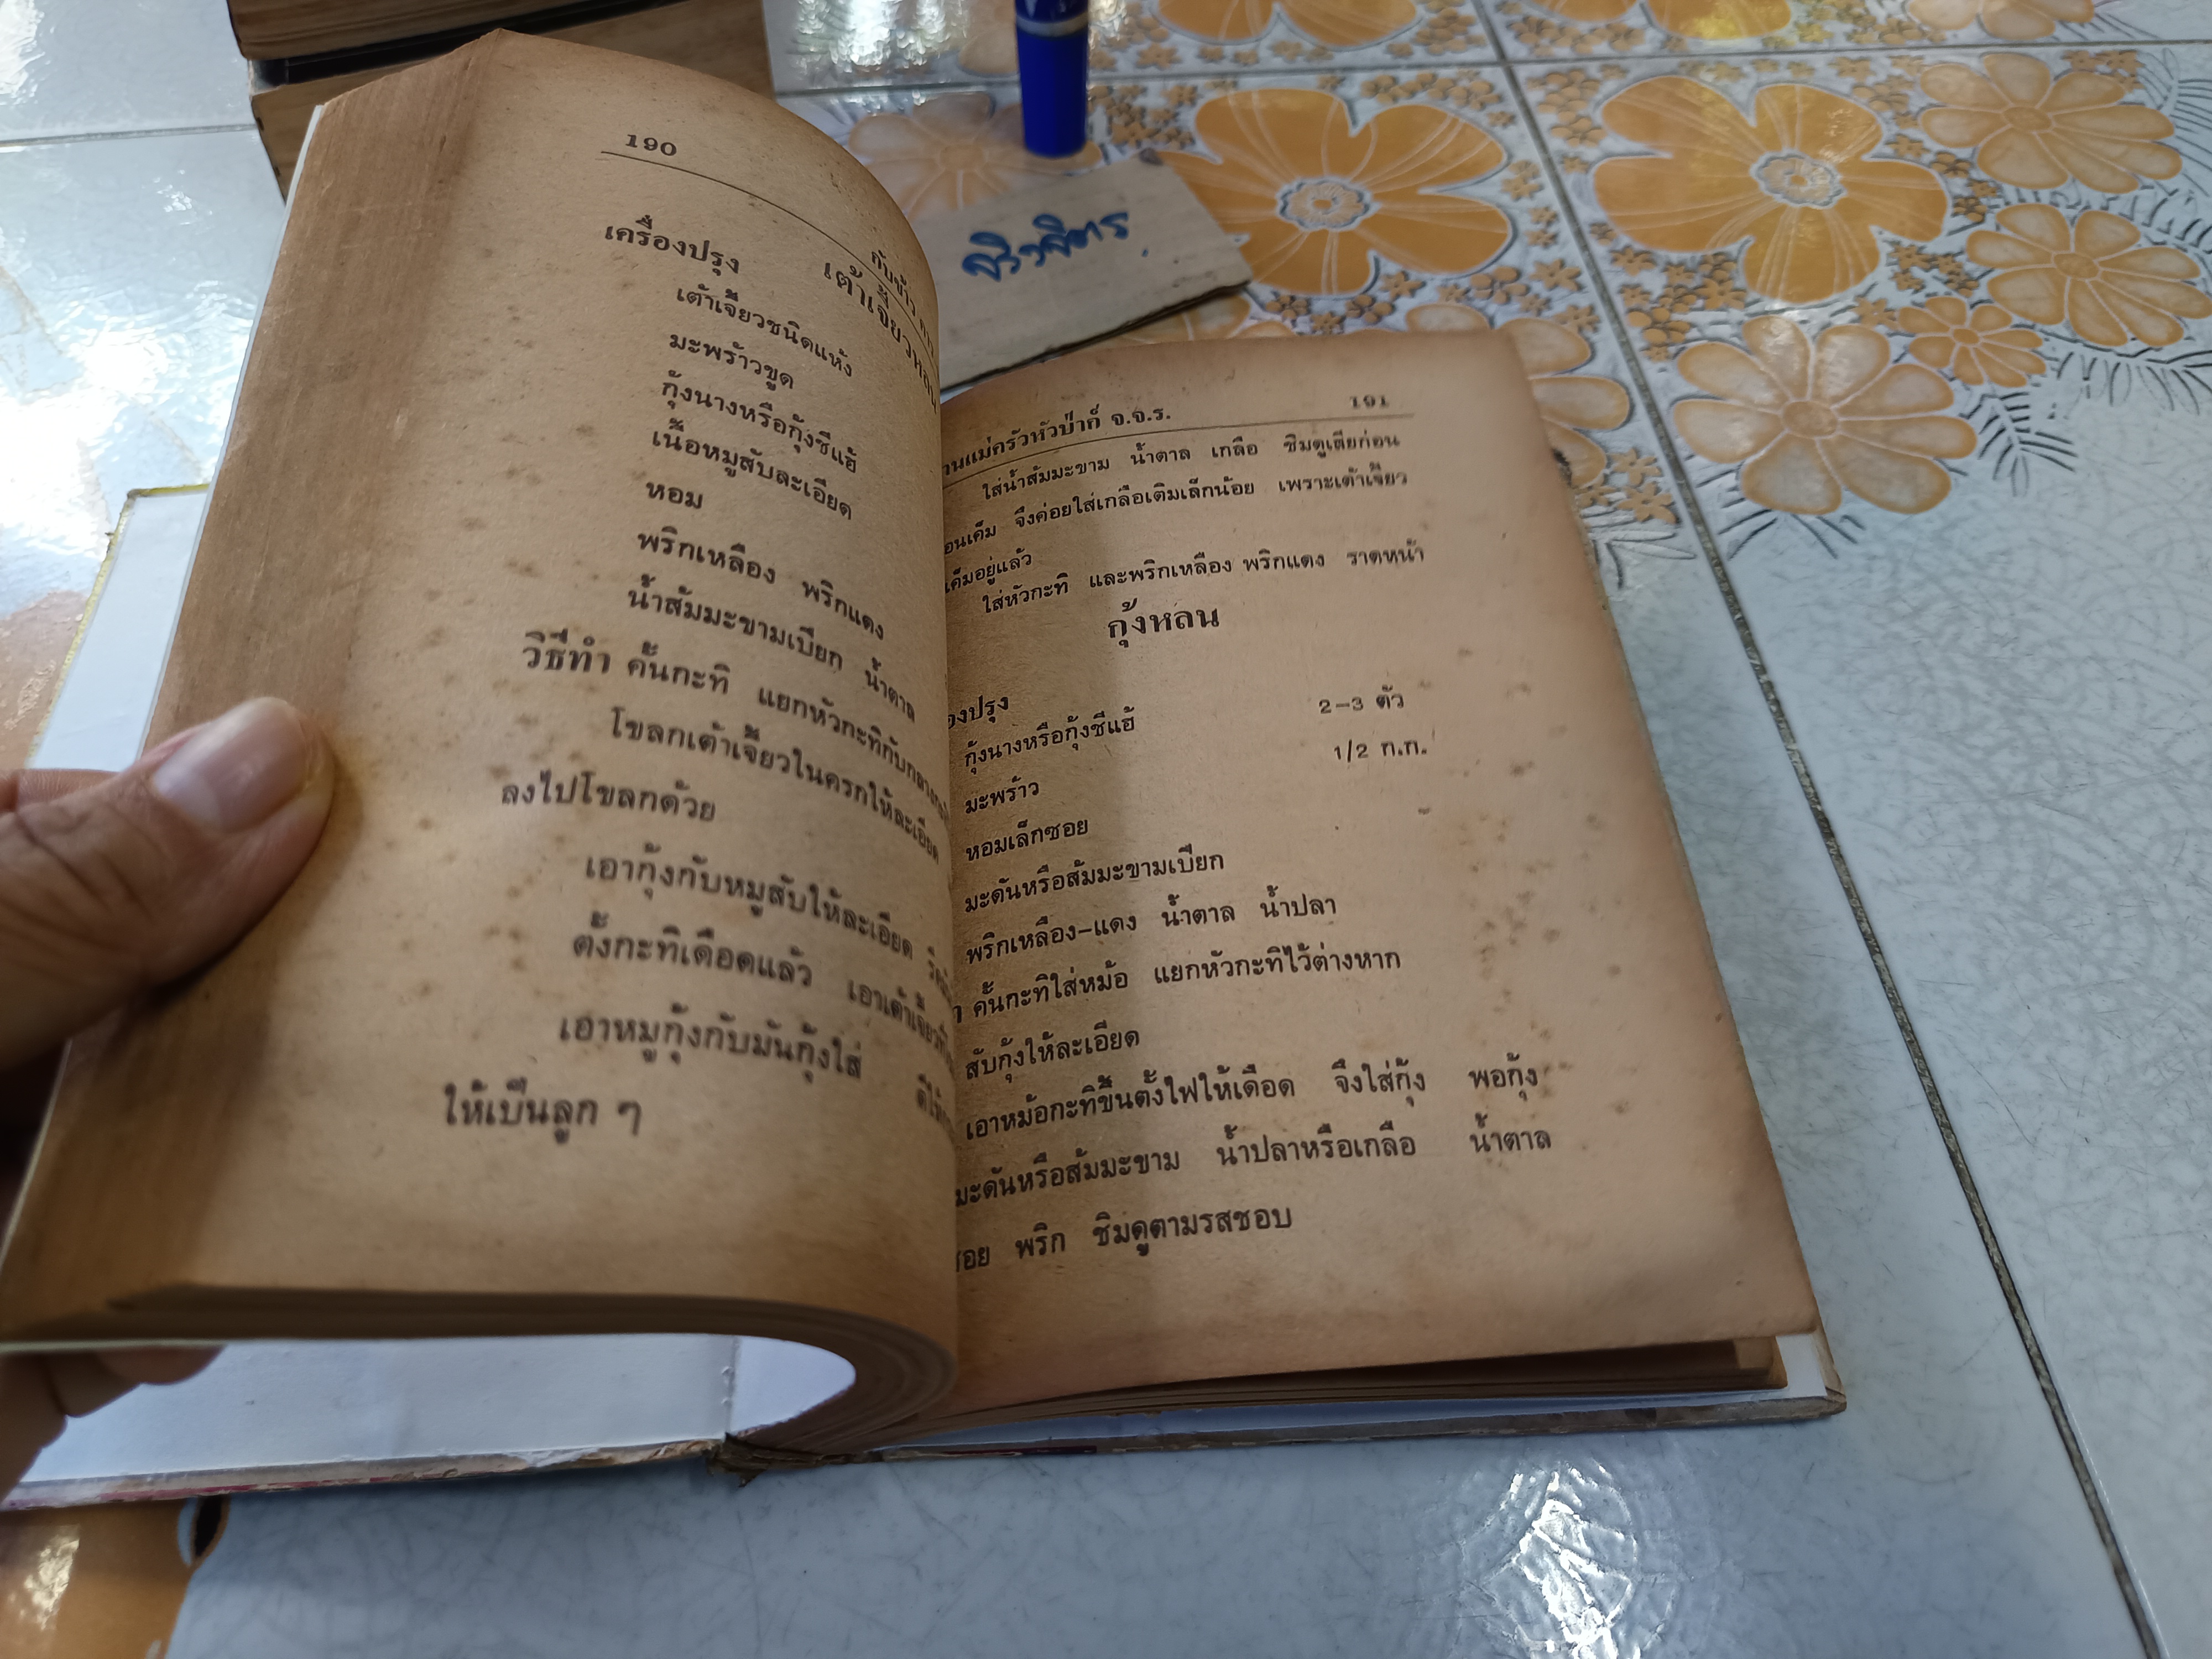 190
กับข้าว
เต้าเจี้ยวหลน
เครื่องปรุง
เต้าเจี้ยวชนิดแห้ง
มะพร้าวขูด
กุ้งนางหรือกุ้งชีแฮ้
เนื้อหมูสับละเอียด
หอม
พริกเหลือง พริกแดง
น้ำส้มมะขามเปียก น้ำตาล
วิธีทำ คั้นกะทิ แยกหัวกะทิกับกลาง
โขลกเต้าเจี้ยวในครกให้ละเอียด
ลงไปโขลกด้วย
เอากุ้งกับหมูสับให้ละเอียด
ตั้งกะทิเดือดแล้ว เอาเต้าเจี้ยว
เอาหมูกุ้งกับมันกุ้งใส่
ให้เป็นลูก ๆ
แม่ครัวหัวป่าก์ จ.จ.ร. 191
ใส่น้ำส้มมะขาม น้ำตาล เกลือ ชิมดูเสียก่อน
อนเค็ม จึงค่อยใส่เกลือเติมเล็กน้อย เพราะเต้าเจี้ยว
เค็มอยู่แล้ว
ใส่หัวกะทิ และพริกเหลือง พริกแดง ราดหน้า
กุ้งหลน
องปรุง
กุ้งนางหรือกุ้งชีแฮ้ 2-3 ตัว
มะพร้าว 1/2 ก.ก.
หอมเล็กซอย
มะดันหรือส้มมะขามเปียก
พริกเหลือง-แดง น้ำตาล น้ำปลา
คั้นกะทิใส่หม้อ แยกหัวกะทิไว้ต่างหาก
สับกุ้งให้ละเอียด
เอาหม้อกะทิขึ้นตั้งไฟให้เดือด จึงใส่กุ้ง พอกุ้ง
มะดันหรือส้มมะขาม น้ำปลาหรือเกลือ น้ำตาล
ซอย พริก ชิมดูตามรสชอบ